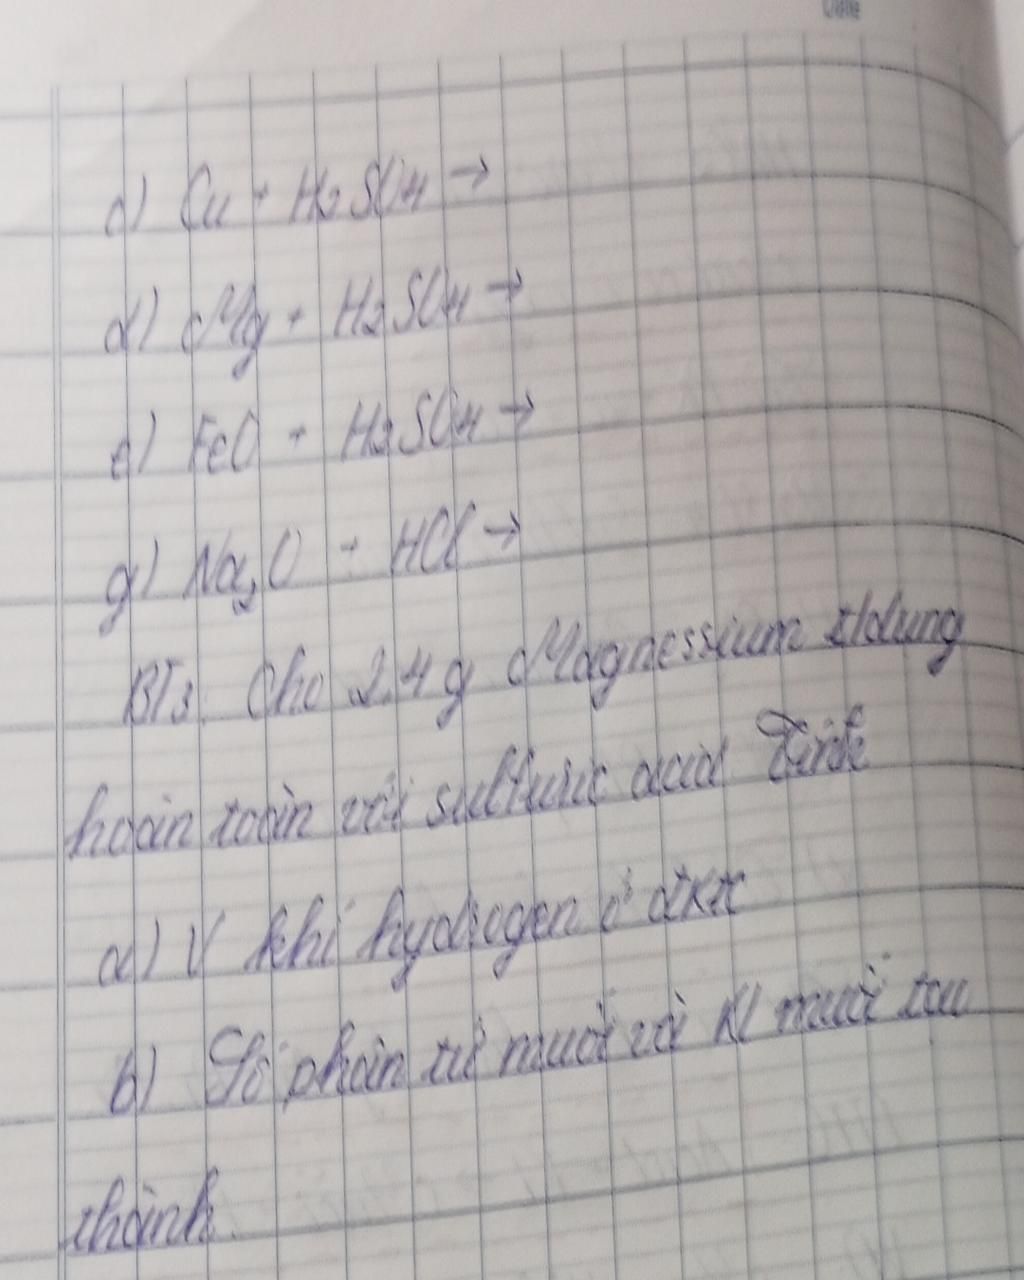 Date
c) Cu + H₂SO₄ →
d) Mg + H₂SO₄ →
e) FeO + H₂SO₄ →
g) Na₂O + HCl →
BT3. Cho 2,4 g Magnessium t/dụng
hoàn toàn với sulfuric acid Tính
a) V khí hydrogen ở đktc
b) Số phân tử muối và Kl muối tạo
thành.